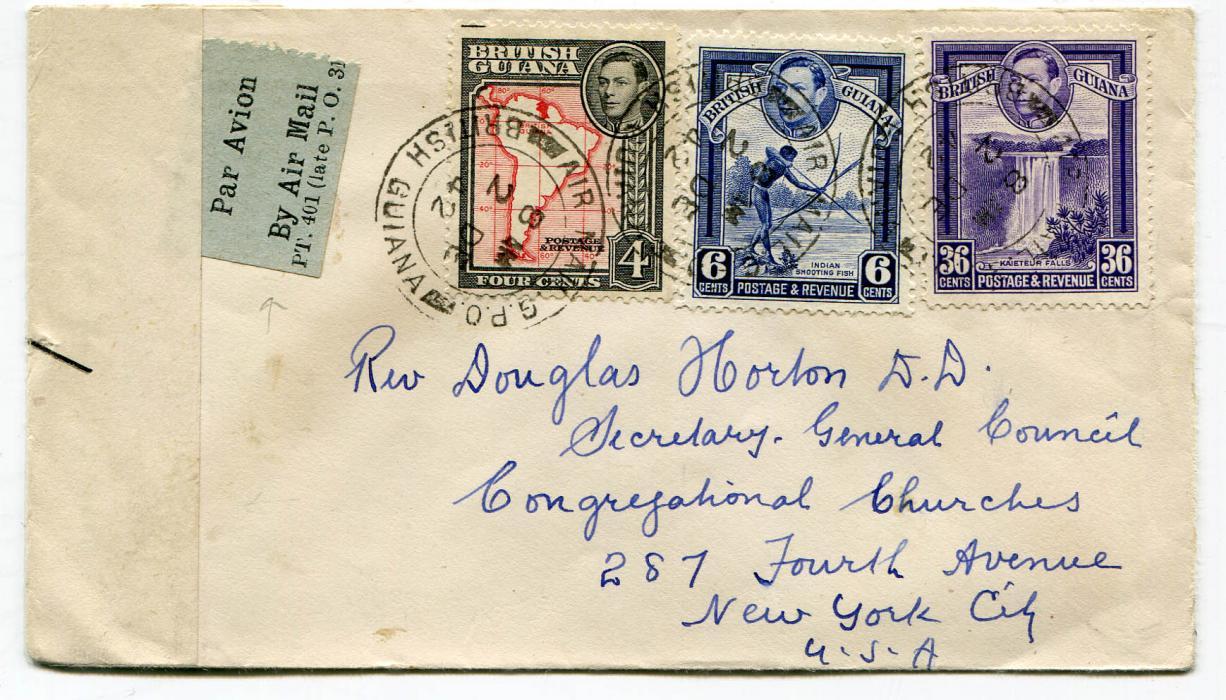 Par Avion
By Air Mail
P.T. 401 (late P. O. 31
BRITISH
GUIANA
POSTAGE
& REVENUE
4
FOUR CENTS
BRITISH GUIANA
INDIAN
SHOOTING FISH
6 CENTS POSTAGE & REVENUE 6 CENTS
BRITISH GUIANA
KAIETEUR FALLS
36 CENTS POSTAGE & REVENUE 36 CENTS
AIR MAIL G.P.O. BRITISH GUIANA
28 DE
42
Rev Douglas Horton D.D.
Secretary. General Council
Congregational Churches
287 Fourth Avenue
New York City
U.S.A